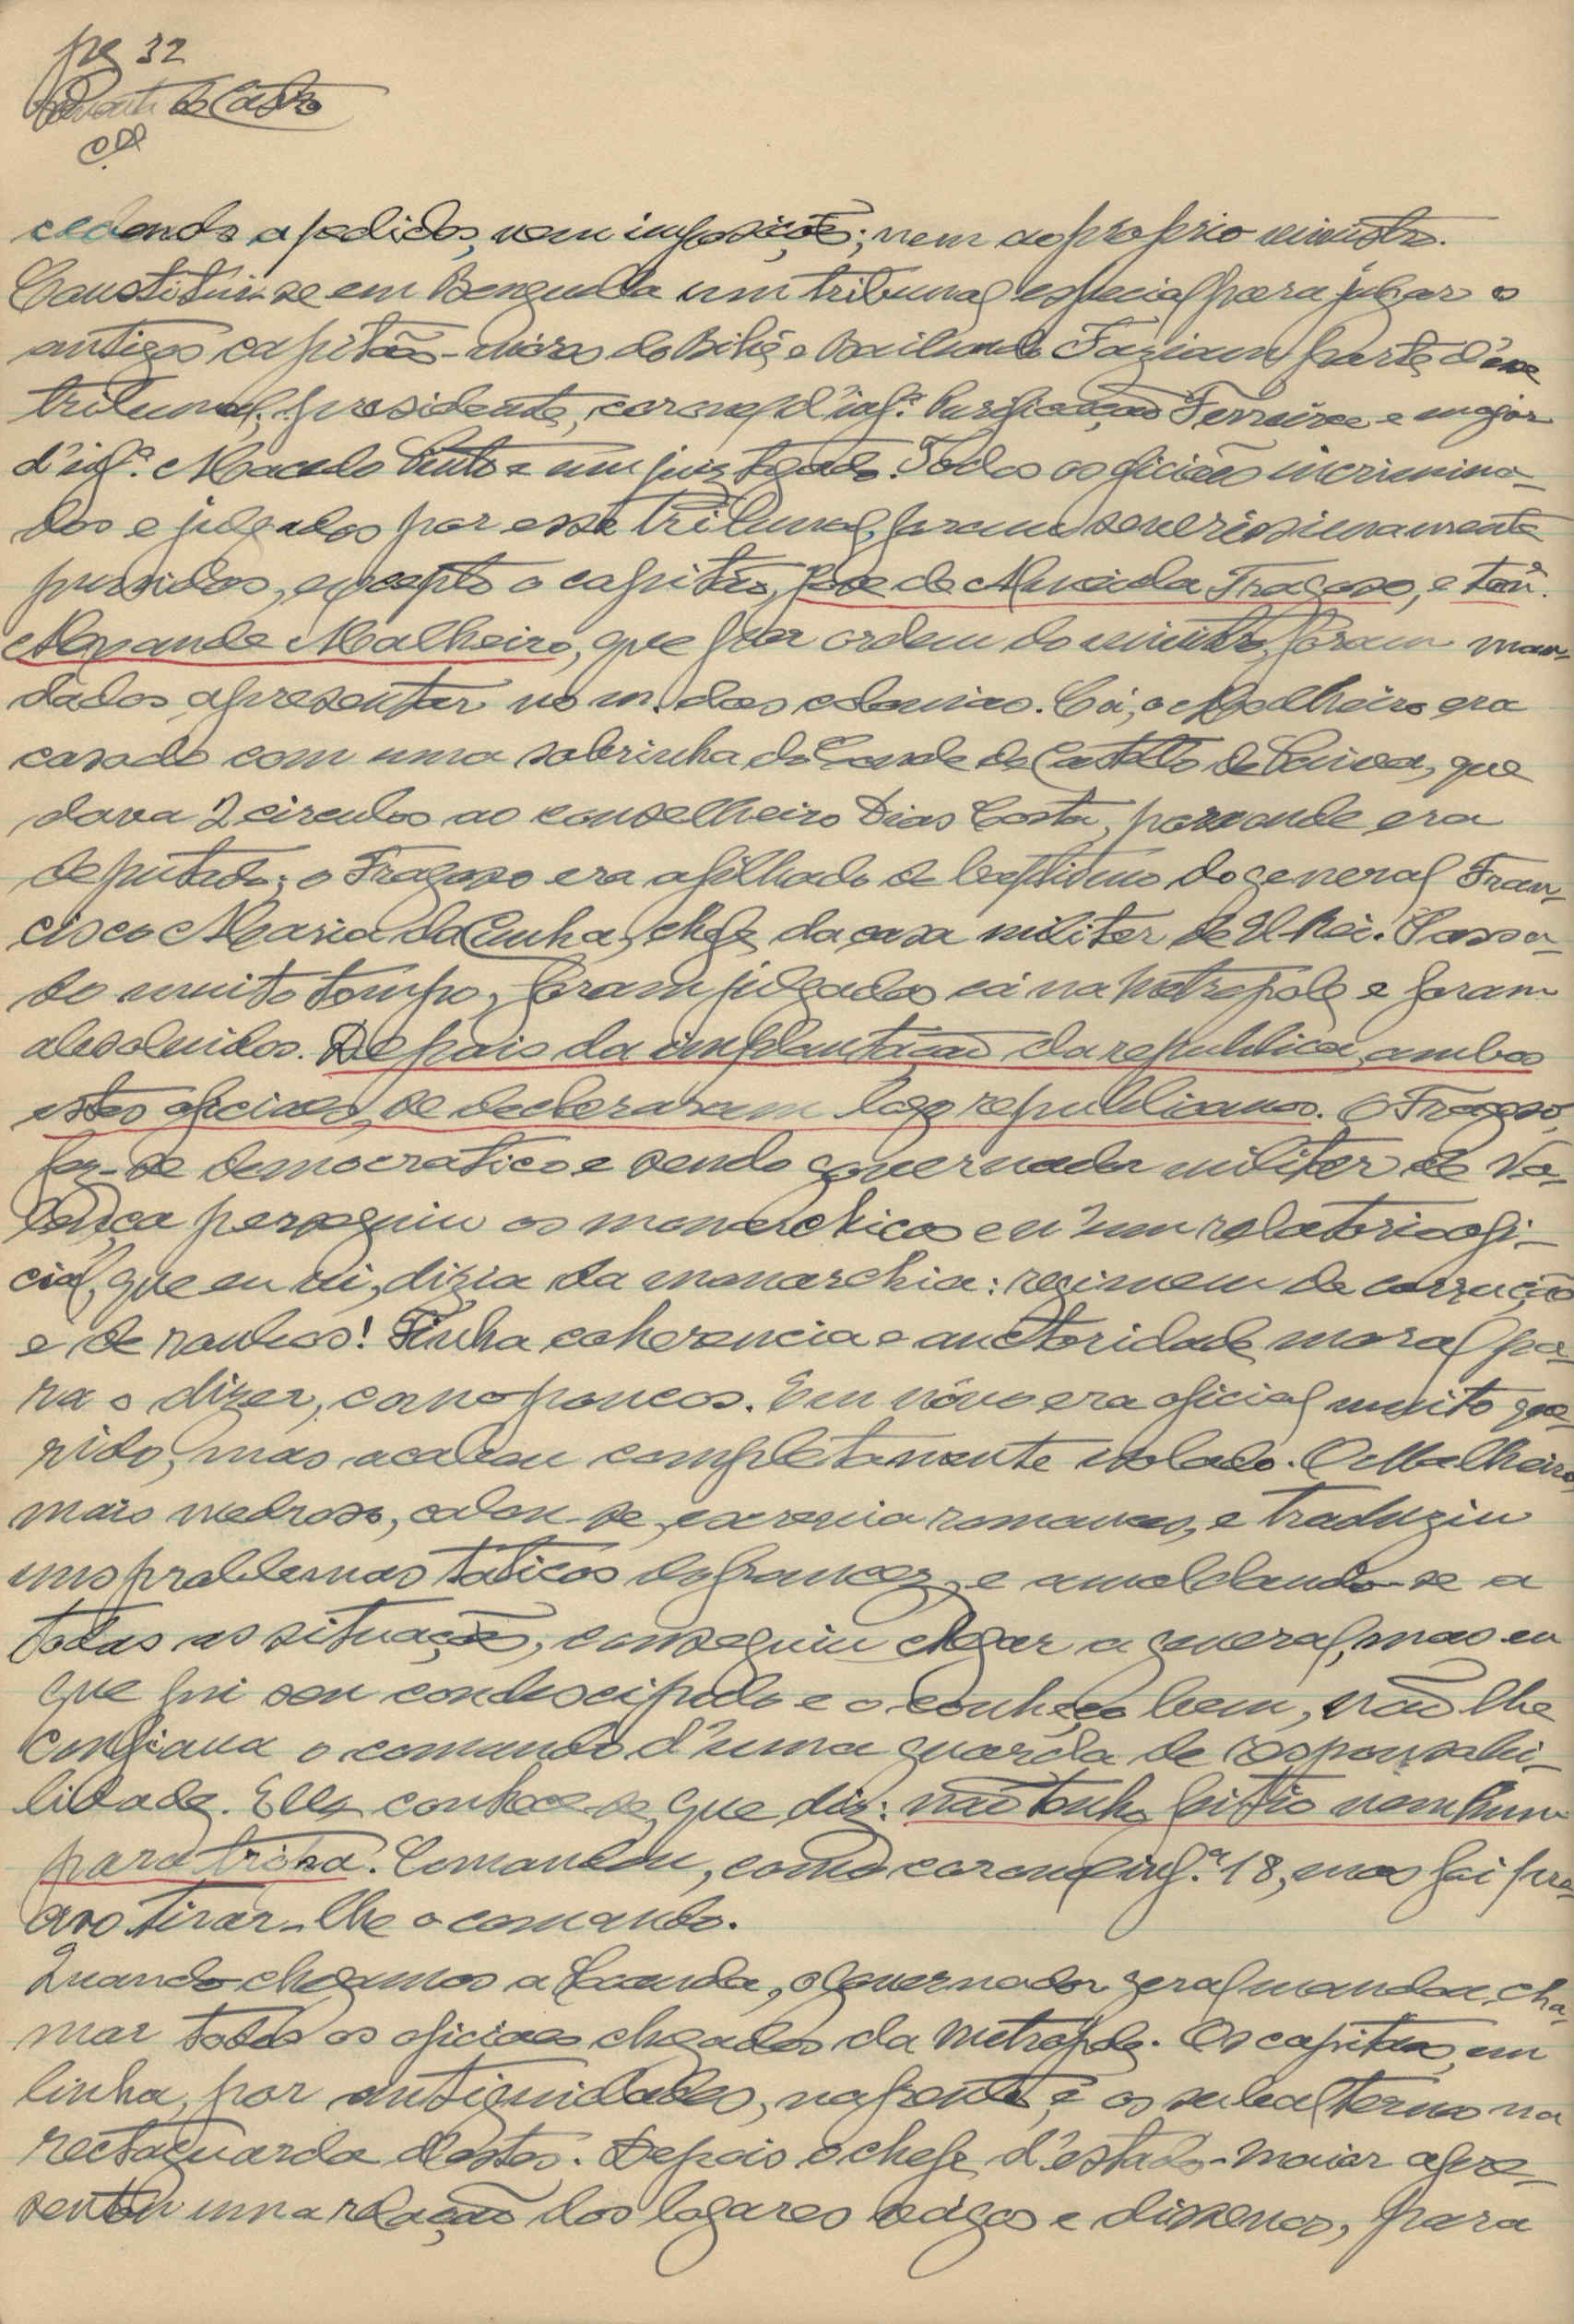 pg 32
de Castro
cedendo a pedidos, nem imposições; nem ao proprio ministro.
Constituiu-se em Benguella um tribunal especial para julgar os
antigos capitães-móres do Bihé e Bailundo. Faziam parte d'esse
tribunal; presidente, coronel d'inf.ª Purificação Ferreira e major
d'inf.ª Macedo Pinto e um juiz togado. Todos os oficiaes incrimina-
dos e julgados por esse tribunal, foram severissimamente
punidos, excepto o capitão, José de Almeida Fragoso, e ten.
Alexandre Malheiro, que por ordem do ministro, foram man-
dados apresentar no m. das colonias. Cá, o Malheiro era
casado com uma sobrinha do Conde de Castello de Paiva, que
dava 2 circulos ao conselheiro Dias Costa, por onde era
deputado; o Fragoso era afilhado de baptismo do general Fran-
cisco Maria da Cunha, chefe da casa militar de El-Rei. Passa-
do muito tempo, foram julgados cá na metropole e foram
absolvidos. Depois da implantação da republica, ambos
estes oficiaes, se declararam logo republicanos. O Fragoso,
fez-se democratico e sendo governador militar de Va-
lença perseguiu os monarchicos e n'um relatorio ofi-
cial, que eu vi, dizia da monarchia: regimem de corrução
e de roubos! Tinha coherencia e auctoridade moral pa-
ra o dizer, como poucos. Em nôvo era oficial muito que-
rido, mas acabou completamente isolado. O Malheiro,
mais medroso, calou-se, escrevia romances, e traduziu
uns problemas taticos do francez, e amoldando-se a
todas as situações, conseguiu chegar a general, mas eu
que fui seu condiscipulo e o conheço bem, não lhe
confiava o comando d'uma guarda de responsabi-
lidade. Elle conhece-se, que diz: não tenho feitio nenhum
para tropa. Comandou, como coronel inf.ª 18, mas foi pre-
ciso tirar-lhe o comando.
Quando chegamos a Loanda, o governador geral mandou cha-
mar todos os oficiaes chegados da metropole. Os capitães, em
linha, por antiguidades, na frente, e os subalternos na
rectaguarda d'estes. Depois o chefe d'estado-maior apre-
sentou uma relação dos logares vágos e disse-nos, para